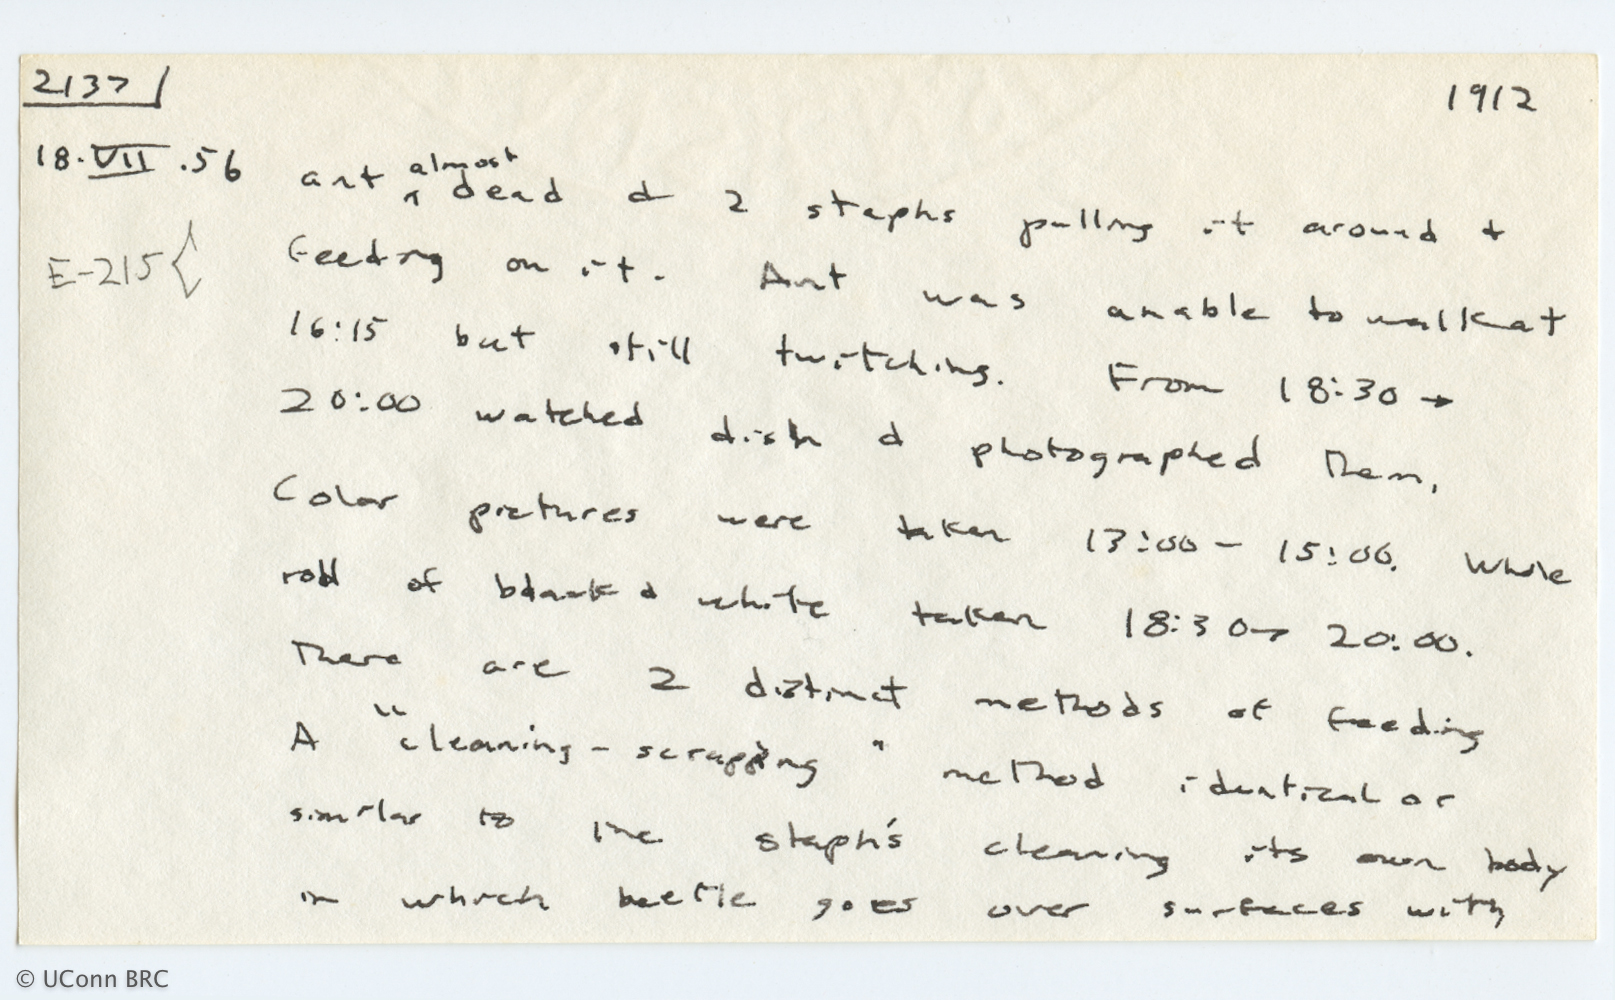 2137
1912
18.VII.56 ant almost dead & 2 staphs pulling it around &
E-215 { feeding on it. Ant was unable to walk at
16:15 but still twitching. From 18:30 →
20:00 watched dish & photographed them.
Color pictures were taken 13:00 - 15:00. Whole
roll of black & white taken 18:30 → 20:00.
There are 2 distinct methods of feeding
A "cleaning-scrapping" method identical or
similar to the staph's cleaning its own body
in which beetle goes over surfaces with
© UConn BRC